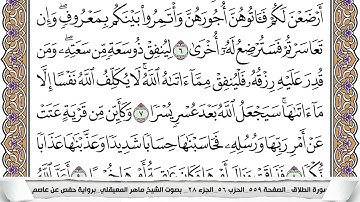 أَرْضَعْنَ لَكُمْ فَـَٔاتُوهُنَّ أُجُورَهُنَّ وَأْتَمِرُوا۟ بَيْنَكُم بِمَعْرُوفٍ ۖ وَإِن
تَعَاسَرْتُمْ فَسَتُرْضِعُ لَهُۥٓ أُخْرَىٰ ٦ لِيُنفِقْ ذُو سَعَةٍ مِّن سَعَتِهِۦ ۖ وَمَن
قُدِرَ عَلَيْهِ رِزْقُهُۥ فَلْيُنفِقْ مِمَّآ ءَاتَىٰهُ ٱللَّهُ ۚ لَا يُكَلِّفُ ٱللَّهُ نَفْسًا إِلَّا
مَآ ءَاتَىٰهَا ۚ سَيَجْعَلُ ٱللَّهُ بَعْدَ عُسْرٍ يُسْرًا ٧ وَكَأَيِّن مِّن قَرْيَةٍ عَتَتْ
عَنْ أَمْرِ رَبِّهَا وَرُسُلِهِۦ فَحَاسَبْنَٰهَا حِسَابًا شَدِيدًا وَعَذَّبْنَٰهَا عَذَابًا
سورة الطلاق _ الصفحة ٥٥٩ _ الحزب ٥٦ _ الجزء ٢٨ _ بصوت الشيخ ماهر المعيقلي _ برواية حفص عن عاصم